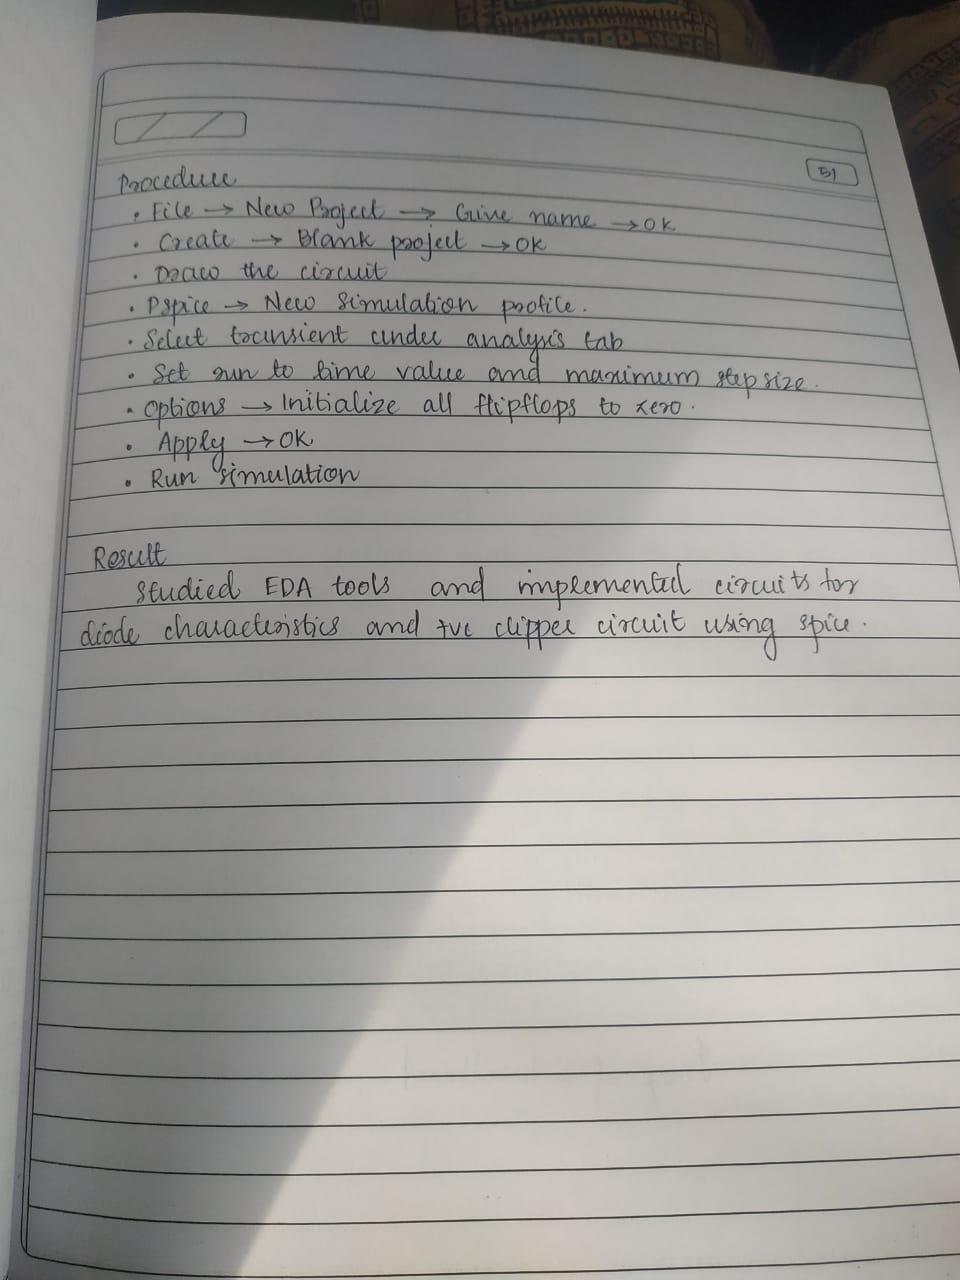 51
Procedure
• File → New Project → Give name → OK
• Create → Blank project → OK
• Draw the circuit
• Pspice → New simulation profile.
• Select transient under analysis tab
• Set run to time value and maximum step size.
• Options → Initialize all flipflops to zero.
• Apply → OK
• Run simulation
Result
Studied EDA tools and implemented circuits for
diode characteristics and +ve clipper circuit using spice.